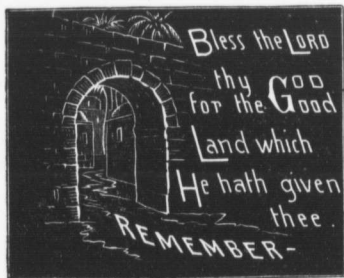 Bless the LORD
thy GOD
for the Good
Land which
He hath given
thee.
REMEMBER-